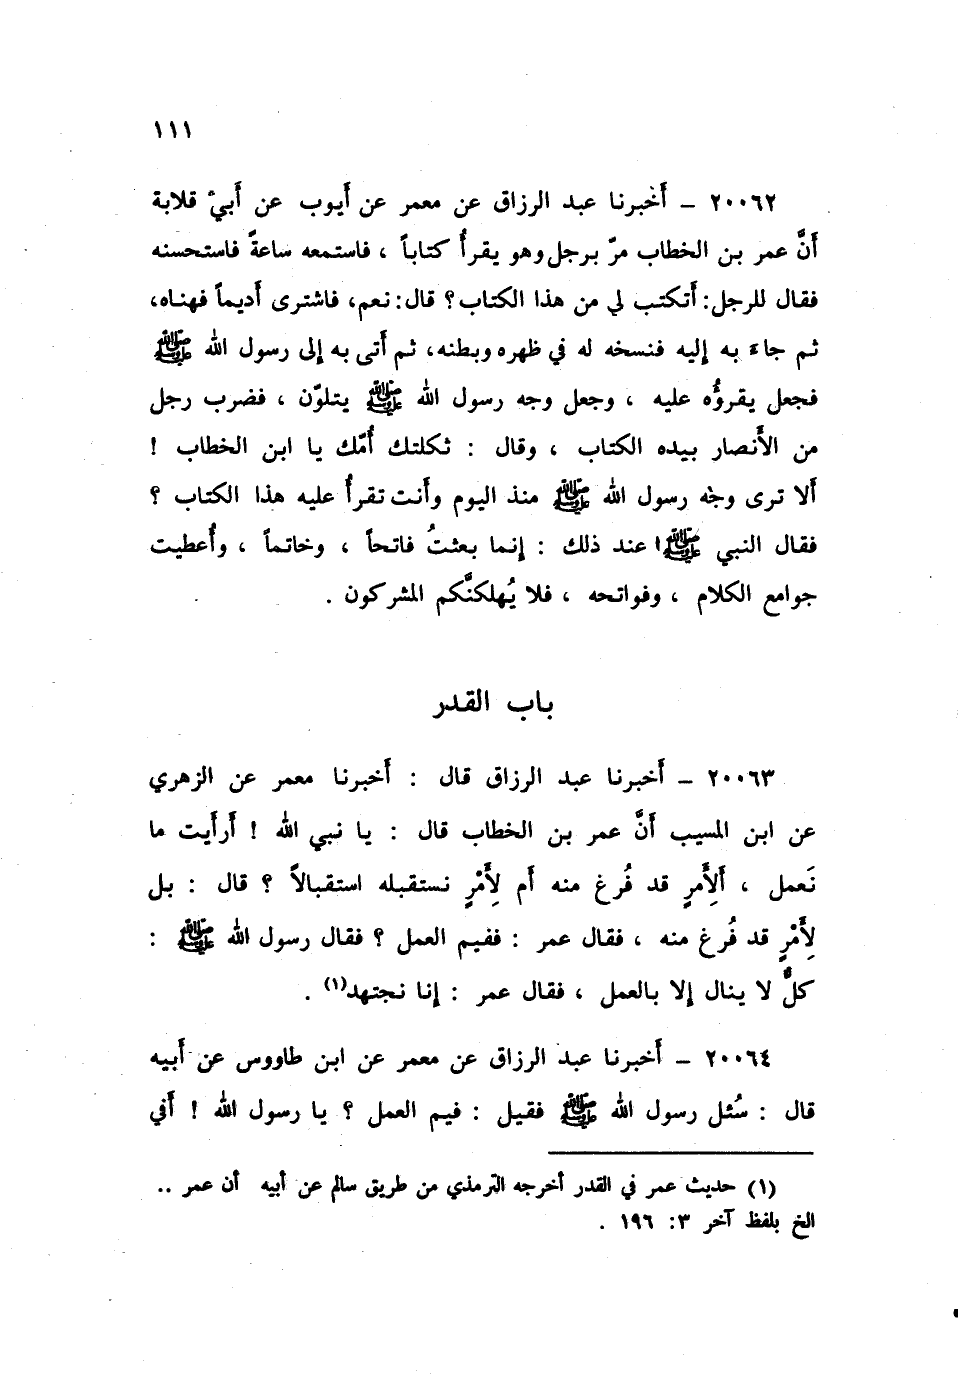 ١١١
٢٠٠٦٢ – أَخْبرنا عبد الرزاق عن معمر عن أَيوب عن أَبي قلابة
أَنَّ عمر بن الخطاب مرّ برجل وهو يقرأُ كتاباً ، فاستمعه ساعةً فاستحسنه
فقال للرجل: أَتكتب لي من هذا الكتاب؟ قال: نعم، فاشترى أَديماً فهناه،
ثم جاءَ به إليه فنسخه له في ظهره وبطنه، ثم أَتى به إلى رسول الله ﷺ
فجعل يقرؤُه عليه ، وجعل وجه رسول الله ﷺ يتلوّن ، فضرب رجل
من الأَنصار بيده الكتاب ، وقال : ثكلتك أُمّك يا ابن الخطاب !
أَلا ترى وجْه رسول الله ﷺ منذ اليوم وأَنت تقرأُ عليه هذا الكتاب ؟
فقال النبي ﷺ عند ذلك : إنما بعثتُ فاتحاً ، وخاتماً ، وأُعطيت
جوامع الكلام ، وفواتحه ، فلا يُهلكنَّكم المشركون .
باب القدر
٢٠٠٦٣ – أَخبرنا عبد الرزاق قال : أَخبرنا معمر عن الزهري
عن ابن المسيب أَنَّ عمر بن الخطاب قال : يا نبي الله ! أَرأَيت ما
نَعمل ، أَلِأَمرٍ قد فُرغ منه أَم لِأَمْرٍ نستقبله استقبالاً ؟ قال : بل
لِأَمْرٍ قد فُرغ منه ، فقال عمر : ففيم العمل ؟ فقال رسول الله ﷺ :
كلٌّ لا ينال إلا بالعمل ، فقال عمر : إنا نجتهد(١) .
٢٠٠٦٤ – أَخبرنا عبد الرزاق عن معمر عن ابن طاووس عن أَبيه
قال : سُئل رسول الله ﷺ فقيل : فيم العمل ؟ يا رسول الله ! أَفي
(١) حديث عمر في القدر أخرجه الترمذي من طريق سالم عن أبيه أن عمر ..
الخ بلفظ آخر ٣: ١٩٦ .